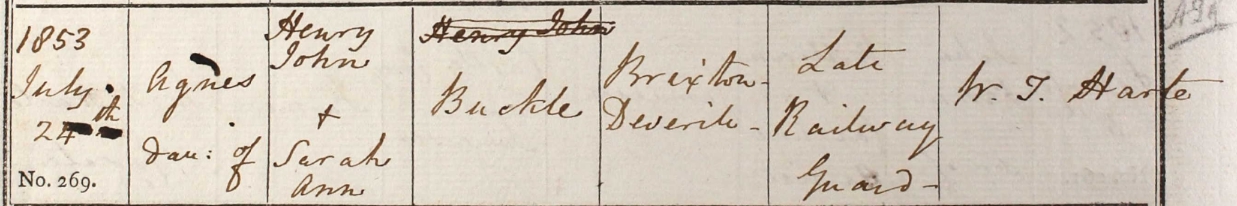 1853
July.
24th
No. 269.
Agnes
Dau: of
Henry
John
+
Sarah
Ann
Henry John
Buckle
Brixton-
Deverill-
Late
Railway
Guard-
W. T. Harte